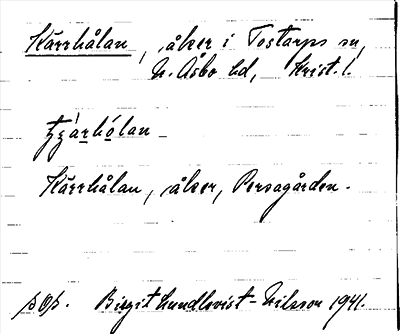 Kärrhålan, åker i Tostarps sn,
N. Åsbo hd, Krist. l.
Kärrhålan, åker, Persagården.
p Op. Birgit Lundkvist-Nilsson 1941.